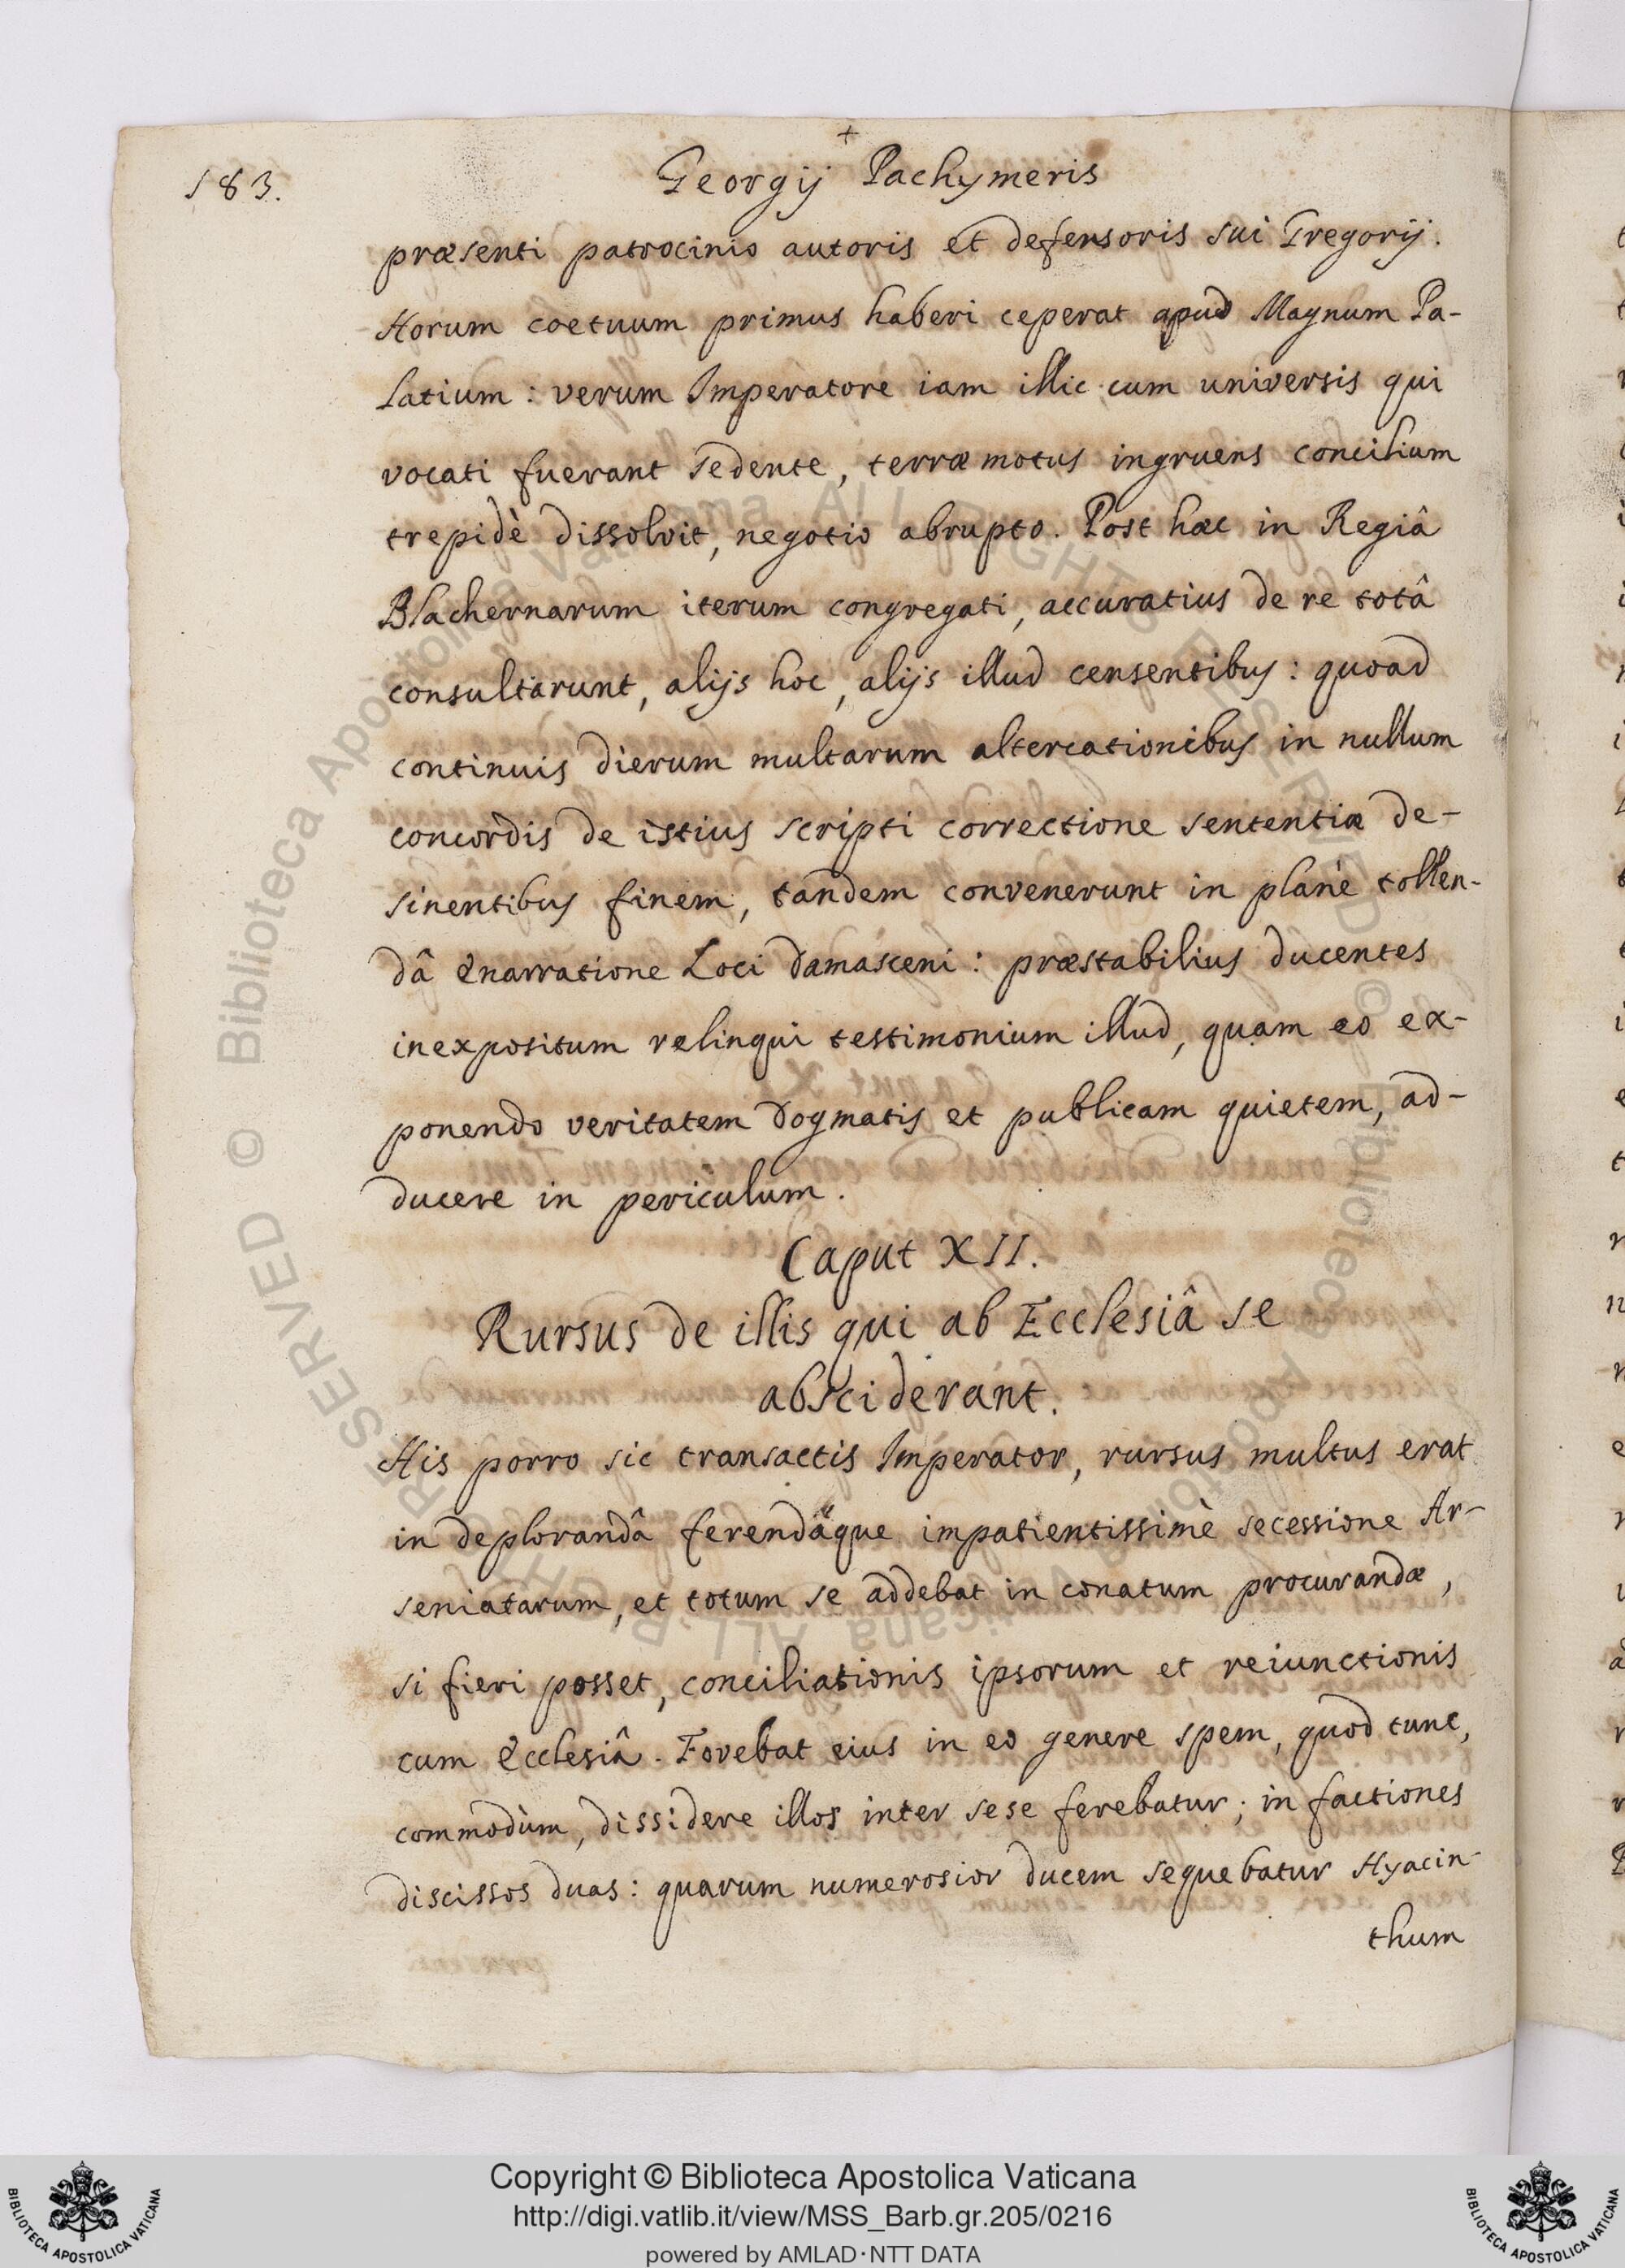 +
183.
Georgij Pachymeris
præsenti patrocinio autoris et defensoris sui Gregorij.
Horum coetuum primus haberi ceperat apud Magnum Pa-
latium : verum Imperatore iam illic cum universis qui
vocati fuerant sedente, terræ motus ingruens concilium
trepidè dissolvit, negotio abrupto. Post hæc in Regiâ
Blachernarum iterum congregati, accuratius de re totâ
consultarunt, alijs hoc, alijs illud censentibus : quoad
continuis dierum multarum altercationibus in nullum
concordis de istius scripti correctione sententiæ de-
sinentibus finem, tandem convenerunt in planè tollen-
dâ enarratione Loci Damasceni : præstabilius ducentes
inexpositum relinqui testimonium illud, quam eo ex-
ponendo veritatem Dogmatis et publicam quietem, ad-
ducere in periculum.
Caput XII.
Rursus de illis qui ab Ecclesiâ se
absciderant.
His porro sic transactis Imperator, rursus multus erat
in deplorandâ ferendâque impatientissimè secessione Ar-
seniatarum, et totum se addebat in conatum procurandæ,
si fieri posset, conciliationis ipsorum et reiunctionis
cum Ecclesiâ. Fovebat eius in eo genere spem, quod tunc,
commodùm, dissidere illos inter sese ferebatur ; in factiones
discissos duas : quarum numerosior ducem sequebatur Hyacin-
thum
© Biblioteca Apostolica Vaticana ALL RIGHTS RESERVED © Biblioteca Apostolica Vaticana ALL RIGHTS RESERVED
Copyright © Biblioteca Apostolica Vaticana
http://digi.vatlib.it/view/MSS_Barb.gr.205/0216
powered by AMLAD·NTT DATA
BIBLIOTECA APOSTOLICA VATICANA
BIBLIOTECA APOSTOLICA VATICANA